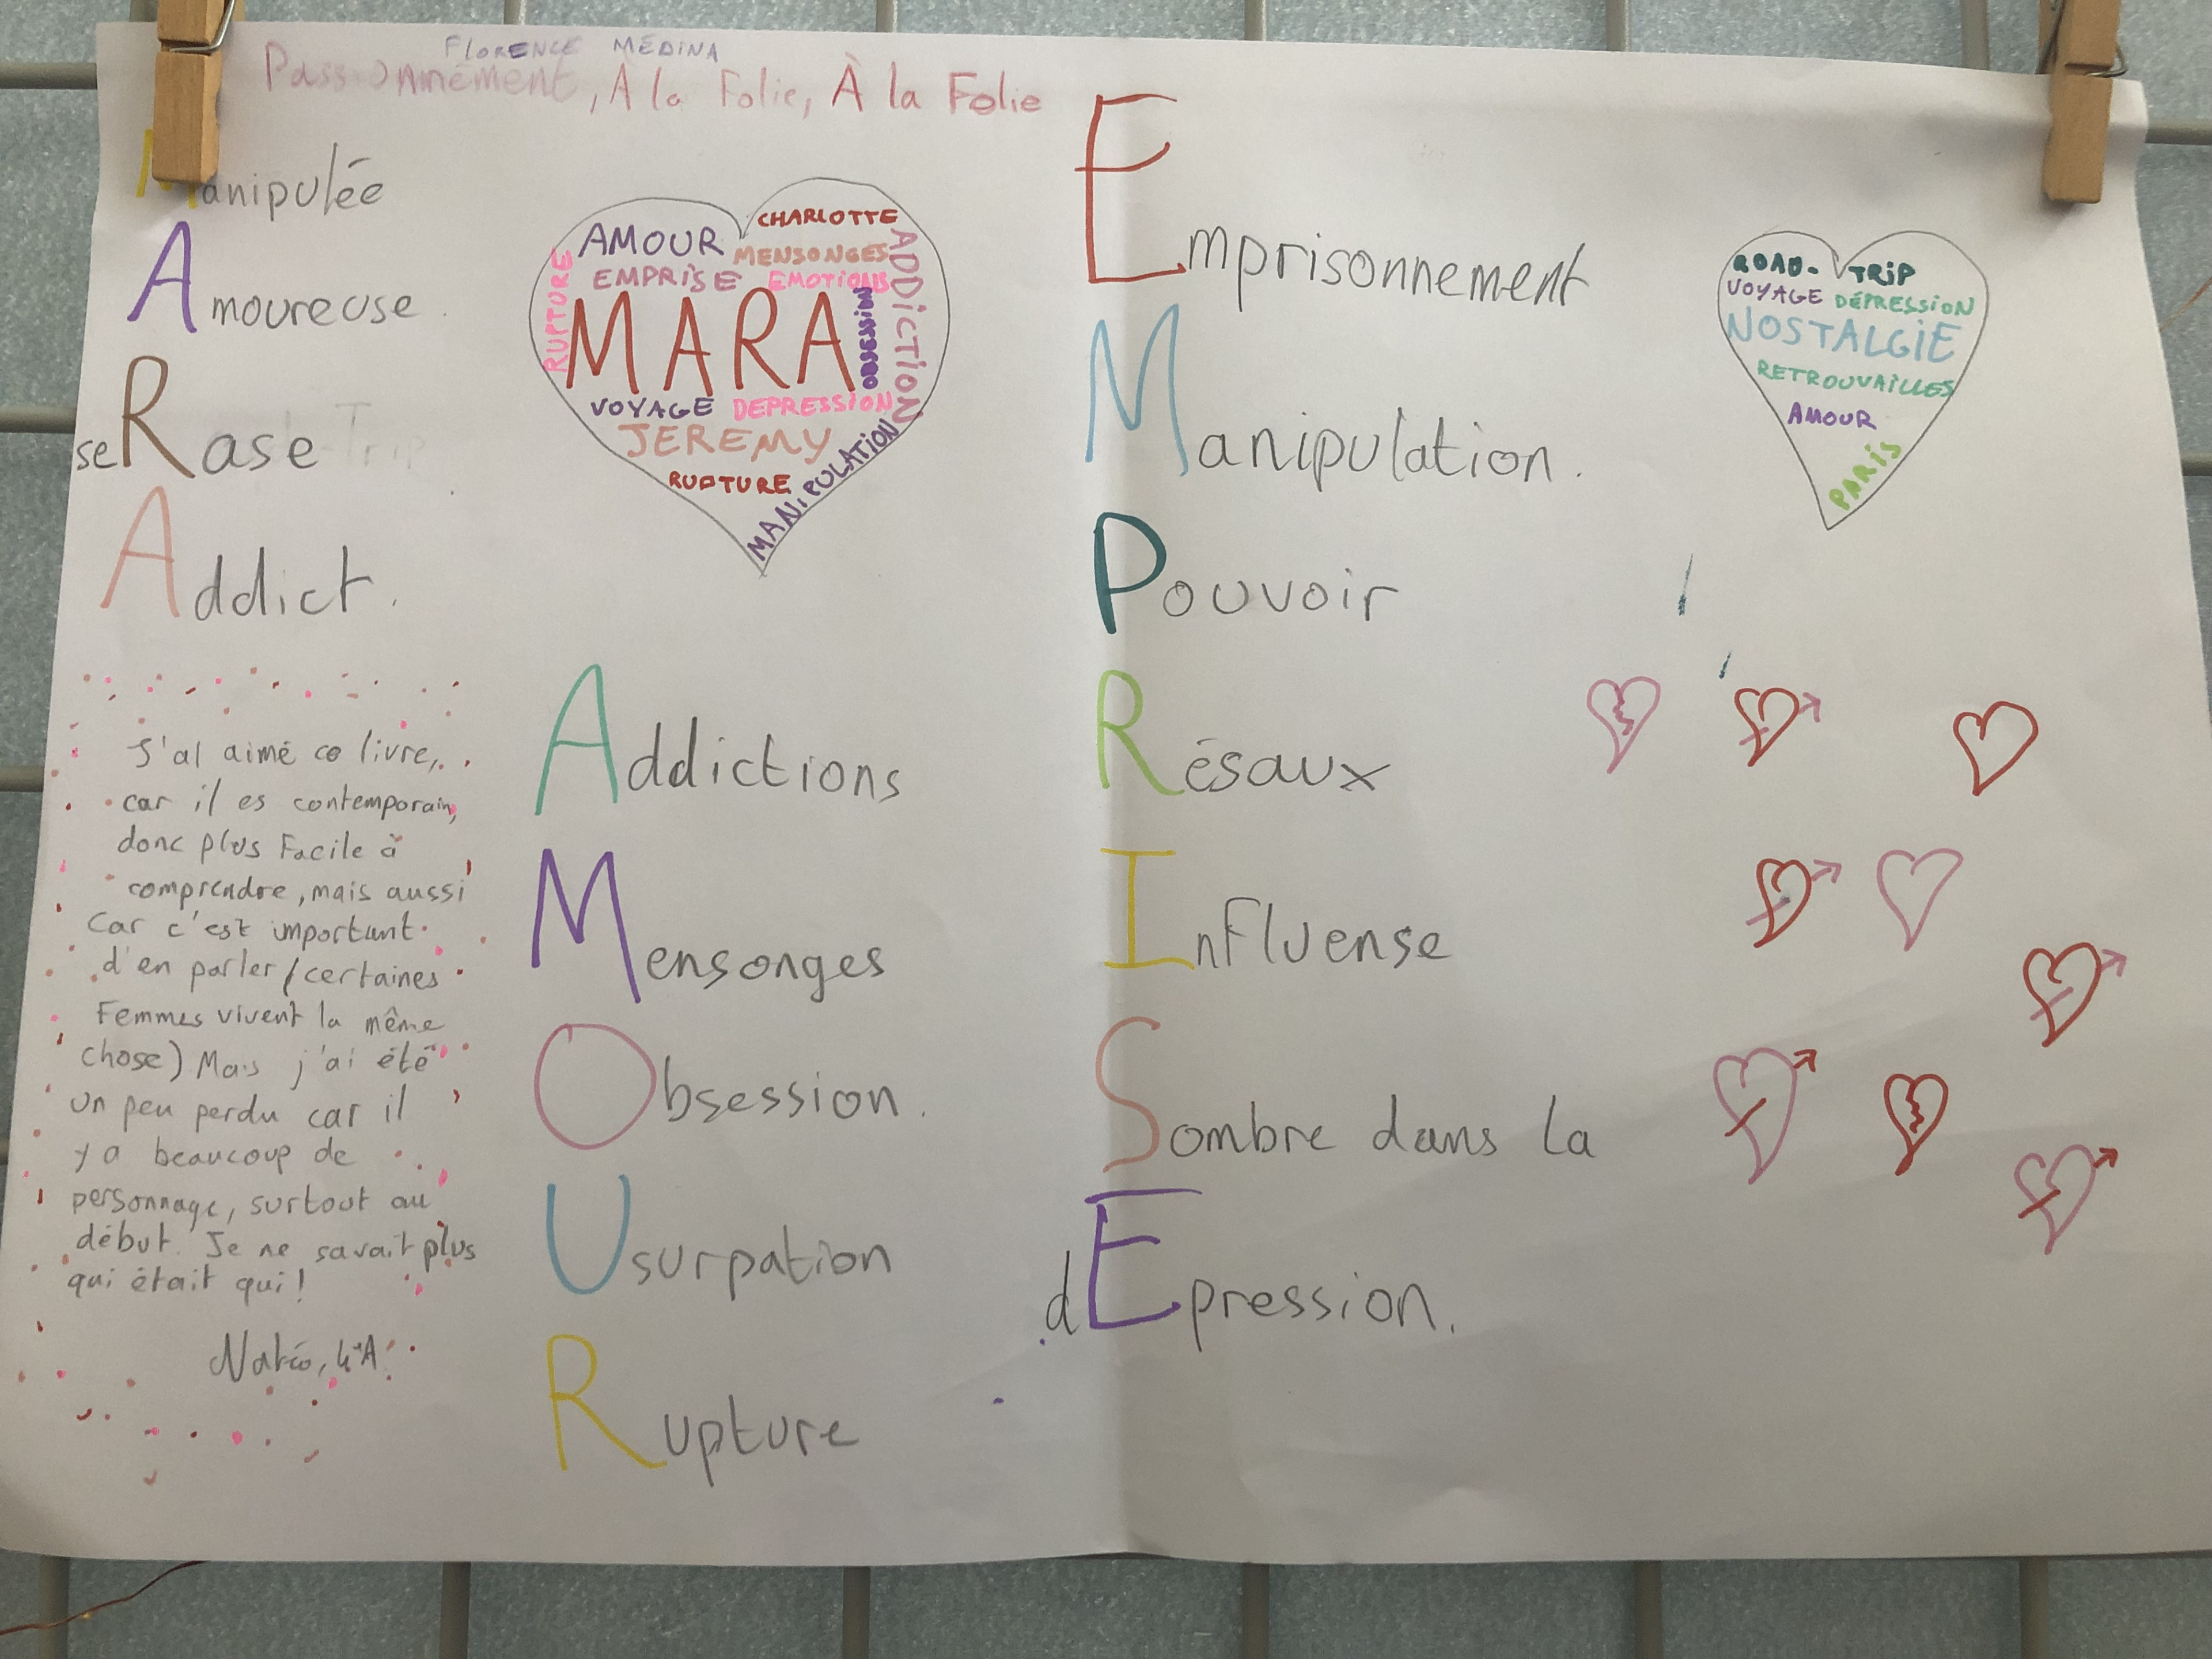 FLORENCE MÉDINA
Passionnément, À la Folie, À la Folie
Manipulée
Amoureuse
seRase
Addict.
CHARLOTTE
AMOUR
MENSONGES
EMPRISE
EMOTIONS
ADDICTION
RUPTURE
MARA
OBSESSION
VOYAGE
DEPRESSION
JEREMY
RUPTURE
MANIPULATION
J'ai aimé ce livre,
car il es contemporain,
donc plus Facile à
comprendre, mais aussi
Car c'est important
d'en parler (certaines
Femmes vivent la même
chose) Mais j'ai été
un peu perdu car il
y a beaucoup de
personnage, surtout au
début. Je ne savait plus
qui était qui!
4eA
Addictions
Mensonges
Obsession.
Usurpation
Rupture
Emprisonnement
Manipulation.
Pouvoir
Résaux
InFluense
Sombre dans la
dEpression.
ROAD-TRIP
VOYAGE DÉPRESSION
NOSTALGIE
RETROUVAILLES
AMOUR
PARIS